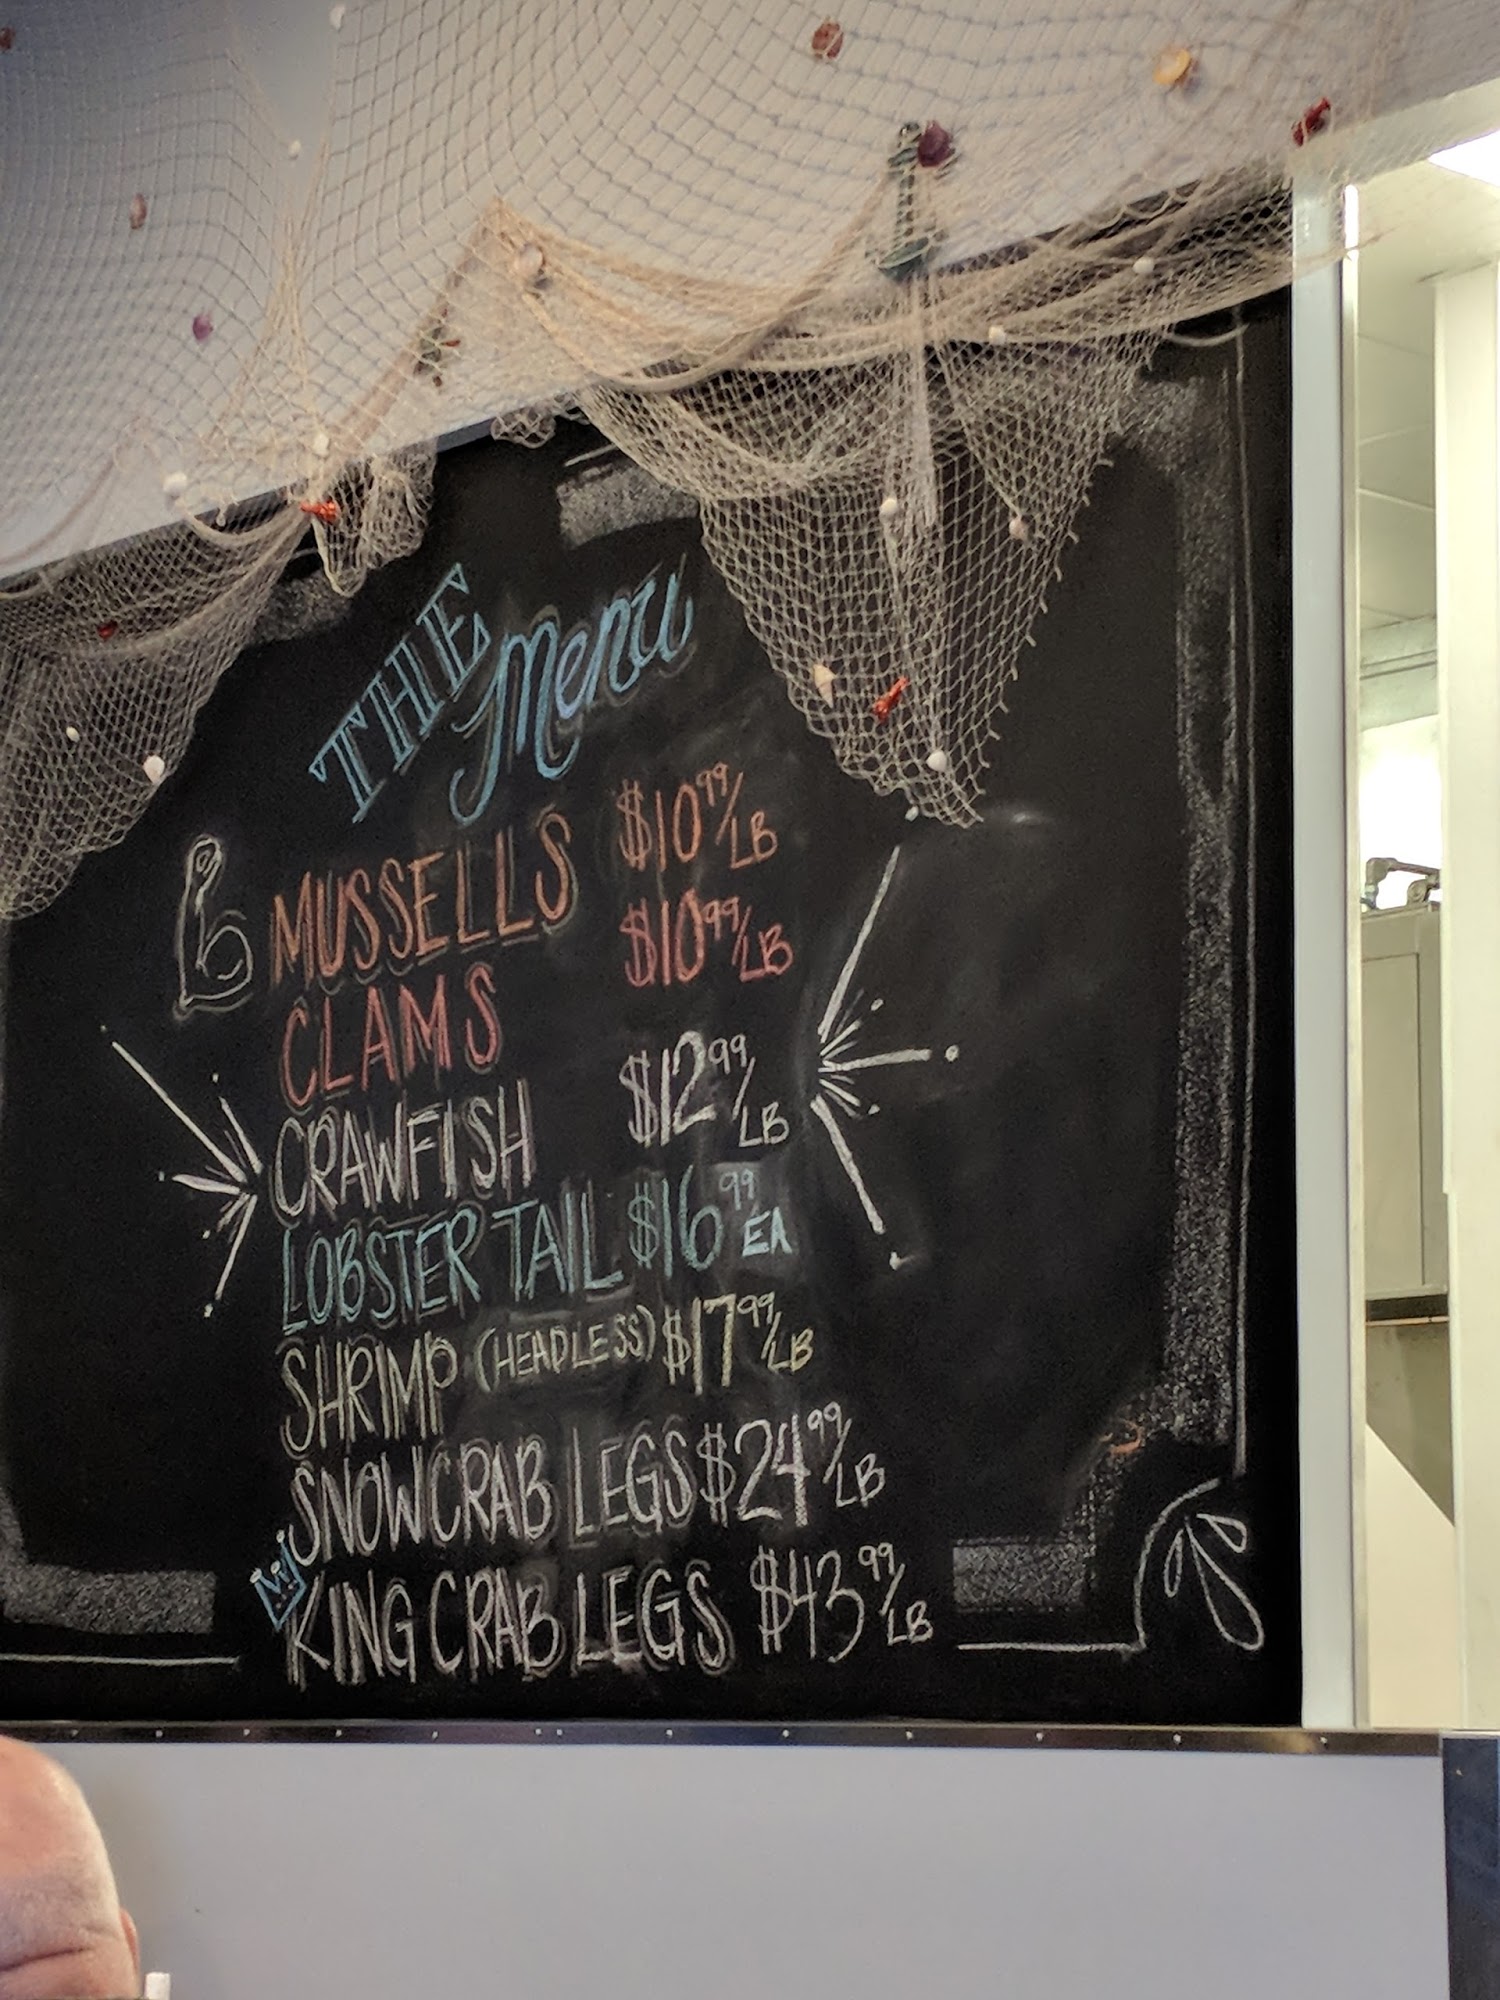 THE Menu
MUSSELLS $10.99/LB
CLAMS $10.99/LB
CRAWFISH $12.99/LB
LOBSTER TAIL $16.99 EA
SHRIMP (HEADLESS) $17.99/LB
SNOWCRAB LEGS $24.99/LB
KING CRAB LEGS $43.99/LB